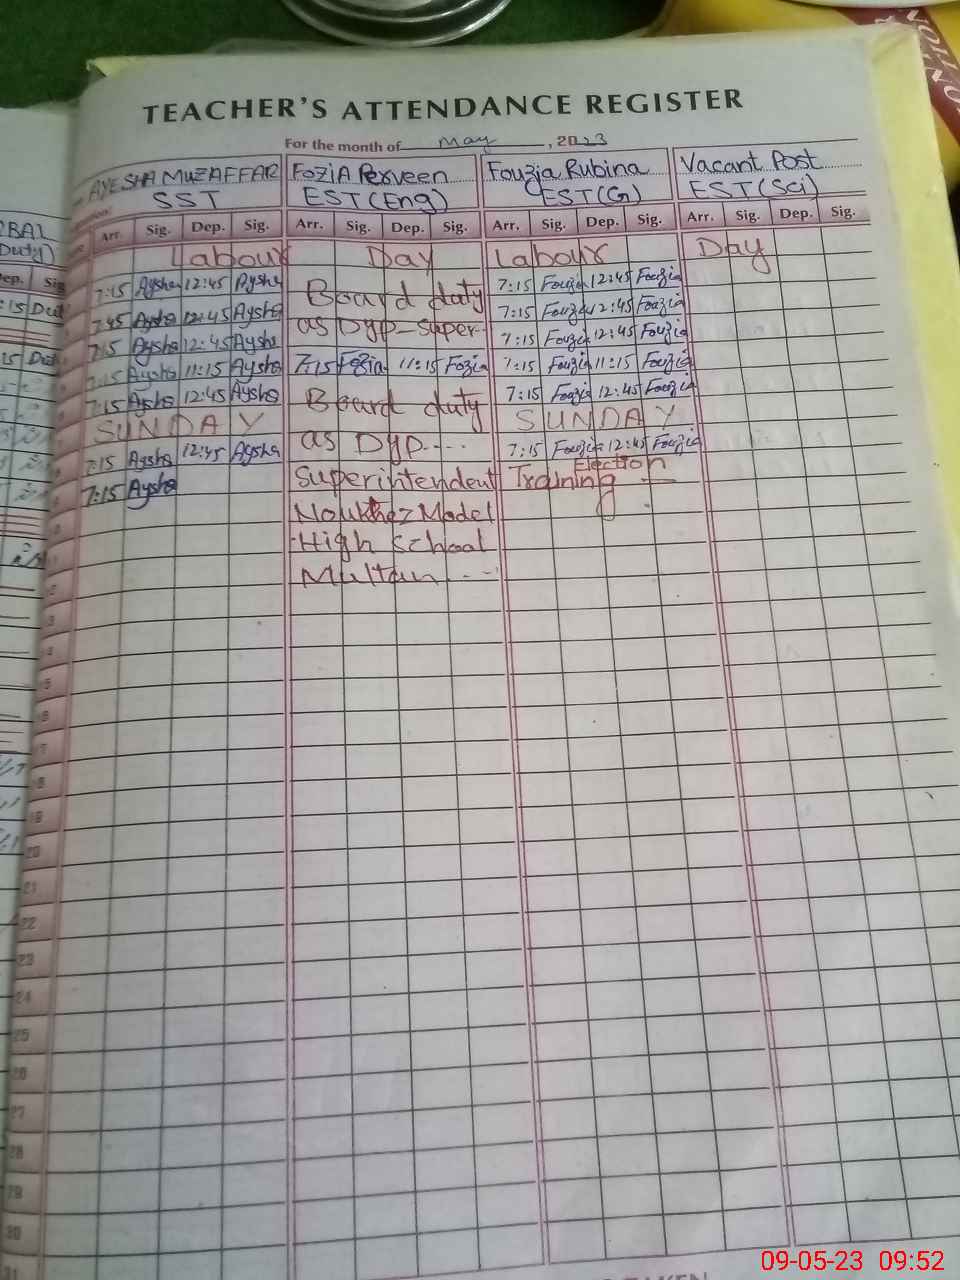 TEACHER'S ATTENDANCE REGISTER
For the month of May, 2023
AYESHA MUZAFFAR FoziA Perveen Fouzia Rubina Vacant Post
SST EST(Eng) EST(G) EST(Sci)
Arr. Sig. Dep. Sig. Arr. Sig. Dep. Sig. Arr. Sig. Dep. Sig. Arr. Sig. Dep. Sig.
Labour Day Labour Day
7:15 Aysha 12:45 Aysha Board duty 7:15 Fouzia 12:45 Fouzia
7:45 Aysha 12:45 Aysha as Dyp-super- 7:15 Fouzia 12:45 Fouzia
7:15 Aysha 12:45 Aysha 7:15 Fouzia 12:45 Fouzia
7:15 Aysha 11:15 Aysha 7:15 Fozia 11:15 Fozia 7:15 Fouzia 11:15 Fouzia
7:15 Aysha 12:45 Aysha Board duty 7:15 Fouzia 12:45 Fouzia
SUNDAY SUNDAY
7:15 Aysha 12:45 Aysha as Dyp.... 7:15 Fouzia 12:45 Fouzia
7:15 Aysha Superintendent Election Training
Model
High School
Multan
20
21
22
23
24
25
26
27
28
29
30
31
09-05-23 09:52